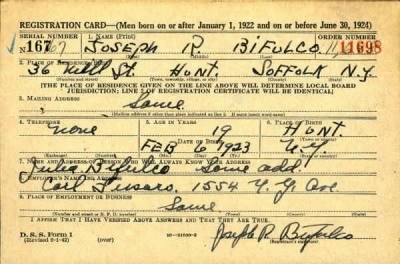 REGISTRATION CARD—(Men born on or after January 1, 1922 and on or before June 30, 1924)
SERIAL NUMBER 1. NAME (Print) ORDER NUMBER
N 167 JOSEPH R. BIFULCO 11698
2. PLACE OF RESIDENCE
36 St. HUNT. SUFFOLK N.Y.
[THE PLACE OF RESIDENCE GIVEN ON THE LINE ABOVE WILL DETERMINE LOCAL BOARD
JURISDICTION; LINE 2 OF REGISTRATION CERTIFICATE WILL BE IDENTICAL]
3. MAILING ADDRESS
Same
4. TELEPHONE 5. AGE IN YEARS 6. PLACE OF BIRTH
none 19 HUNT.
DATE OF BIRTH
FEB 6 1923 N.Y.
7. NAME AND ADDRESS OF PERSON WHO WILL ALWAYS KNOW YOUR ADDRESS
Julia Bifulco Same add.
8. EMPLOYER'S NAME AND ADDRESS
Carl 1554 N.Y. Ave
9. PLACE OF EMPLOYMENT OR BUSINESS
Same
I AFFIRM THAT I HAVE VERIFIED ABOVE ANSWERS AND THAT THEY ARE TRUE.
D. S. S. Form 1
(Revised 6-1-42) (over) Joseph R. Bifulco